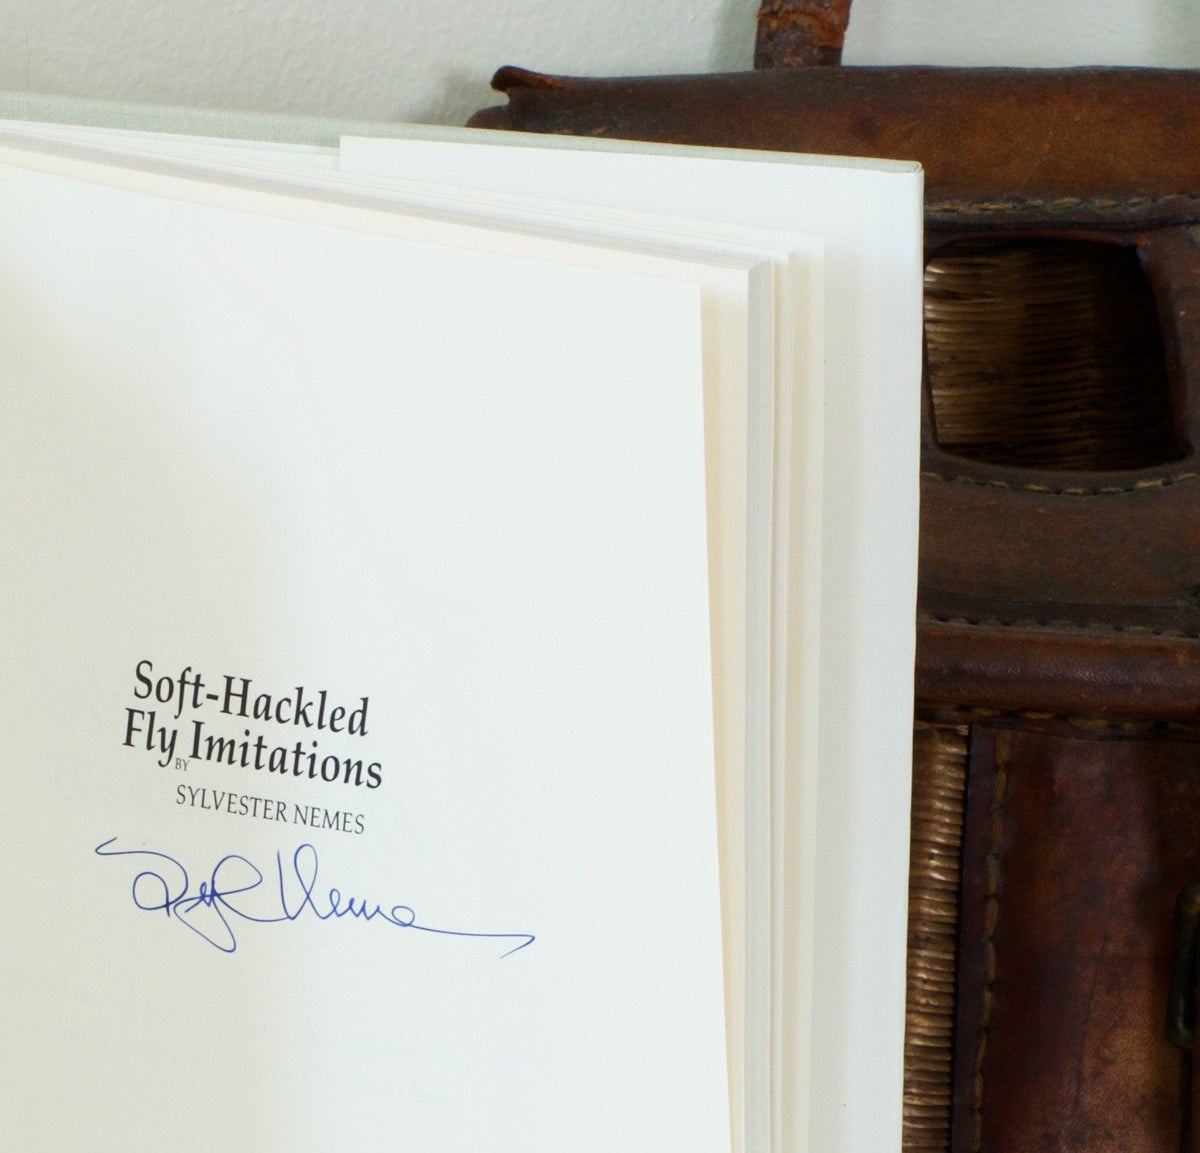 Soft-Hackled
Fly Imitations
BY
SYLVESTER NEMES